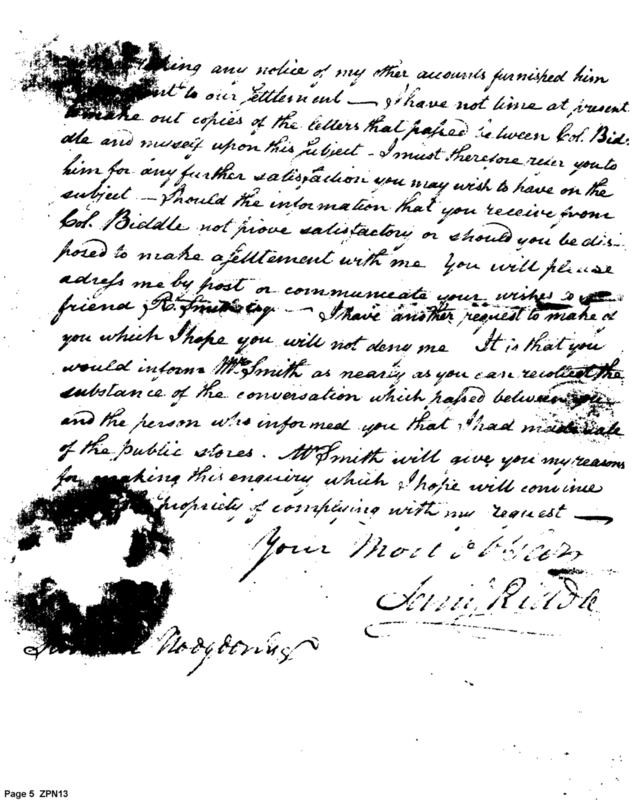 any notice of my other accounts furnished him
to our Settlement — I have not time at present
to make out copies of the letters that passed between Col. Bid-
dle and myself upon this subject – I must therefore refer you to
him for any further satisfaction you may wish to have on the
subject – Should the information that you receive from
Col. Biddle not prove satisfactory or should you be dis-
posed to make a settlement with me You will please
adress me by post or communicate your wishes to
friend R. Smith Esq — I have another request to make of
you which I hope you will not deny me It is that you
would inform Mr. Smith as nearly as you can recollect the
substance of the conversation which passed between you
and the person who informed you that I had made sale
of the public stores. Mr. Smith will give you my reasons
for making this enquiry which I hope will convince
propriety of complying with my request —
Your Most
Page 5 ZPN13